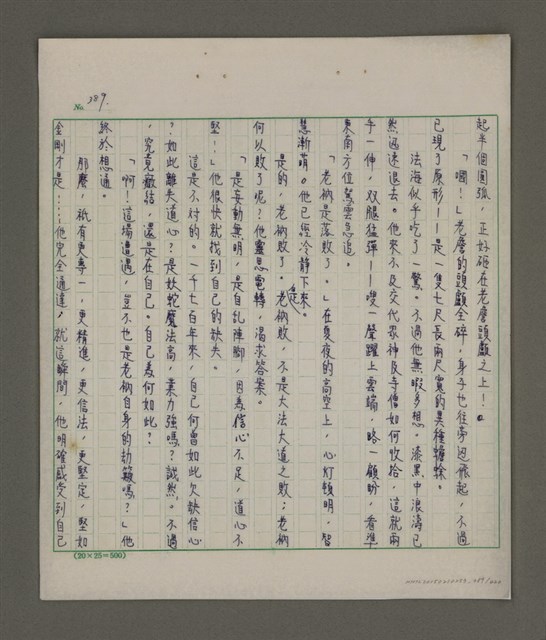 No. 289.
起半個圓弧,正好砸在老麿頭顱之上!。
「唱!」老麿的頭顱全碎,身子也往旁迎飛起,不過
已現了原形——是一隻七尺長兩尺寬的異種蟾蜍。
法海似乎吃了一驚。不過他無暇多想。漆黑中浪濤已
然迅速退去。他來不及交代眾神及寺僧如何收拾,這就兩
手一伸,双腿猛彈——嗖一聲躍上雲端,略一顧盼,看準
東南方位駕雲急追。
「老衲是落敗了。」在夏夜的高空上,心灯頓明,智
慧漸萌。他已經冷靜下來。
是的,老衲敗了。老衲敗,不是大法大道之敗;老衲
何以敗了呢?他靈思電轉,渴求答案。
「是妄動無明,是自乱陣腳,因為信心不足,道心不
堅!」他很快就找到自己的缺失。
這是不对的。一千七百年來,自己何曾如此欠缺信心
?如此離失道心?是妖蛇魔法高,業力強嗎?誠然。不過
,究竟癥結,還是在自己。自己為何如此?
「啊!這場遭遇,豈不也是老衲自身的劫數嗎?」他
終於想通。
那麼,祇有更專一,更精進,更信法,更堅定,堅如
金剛才是……他完全通達,就這瞬間,他明確感受到自己
(20×25=500)